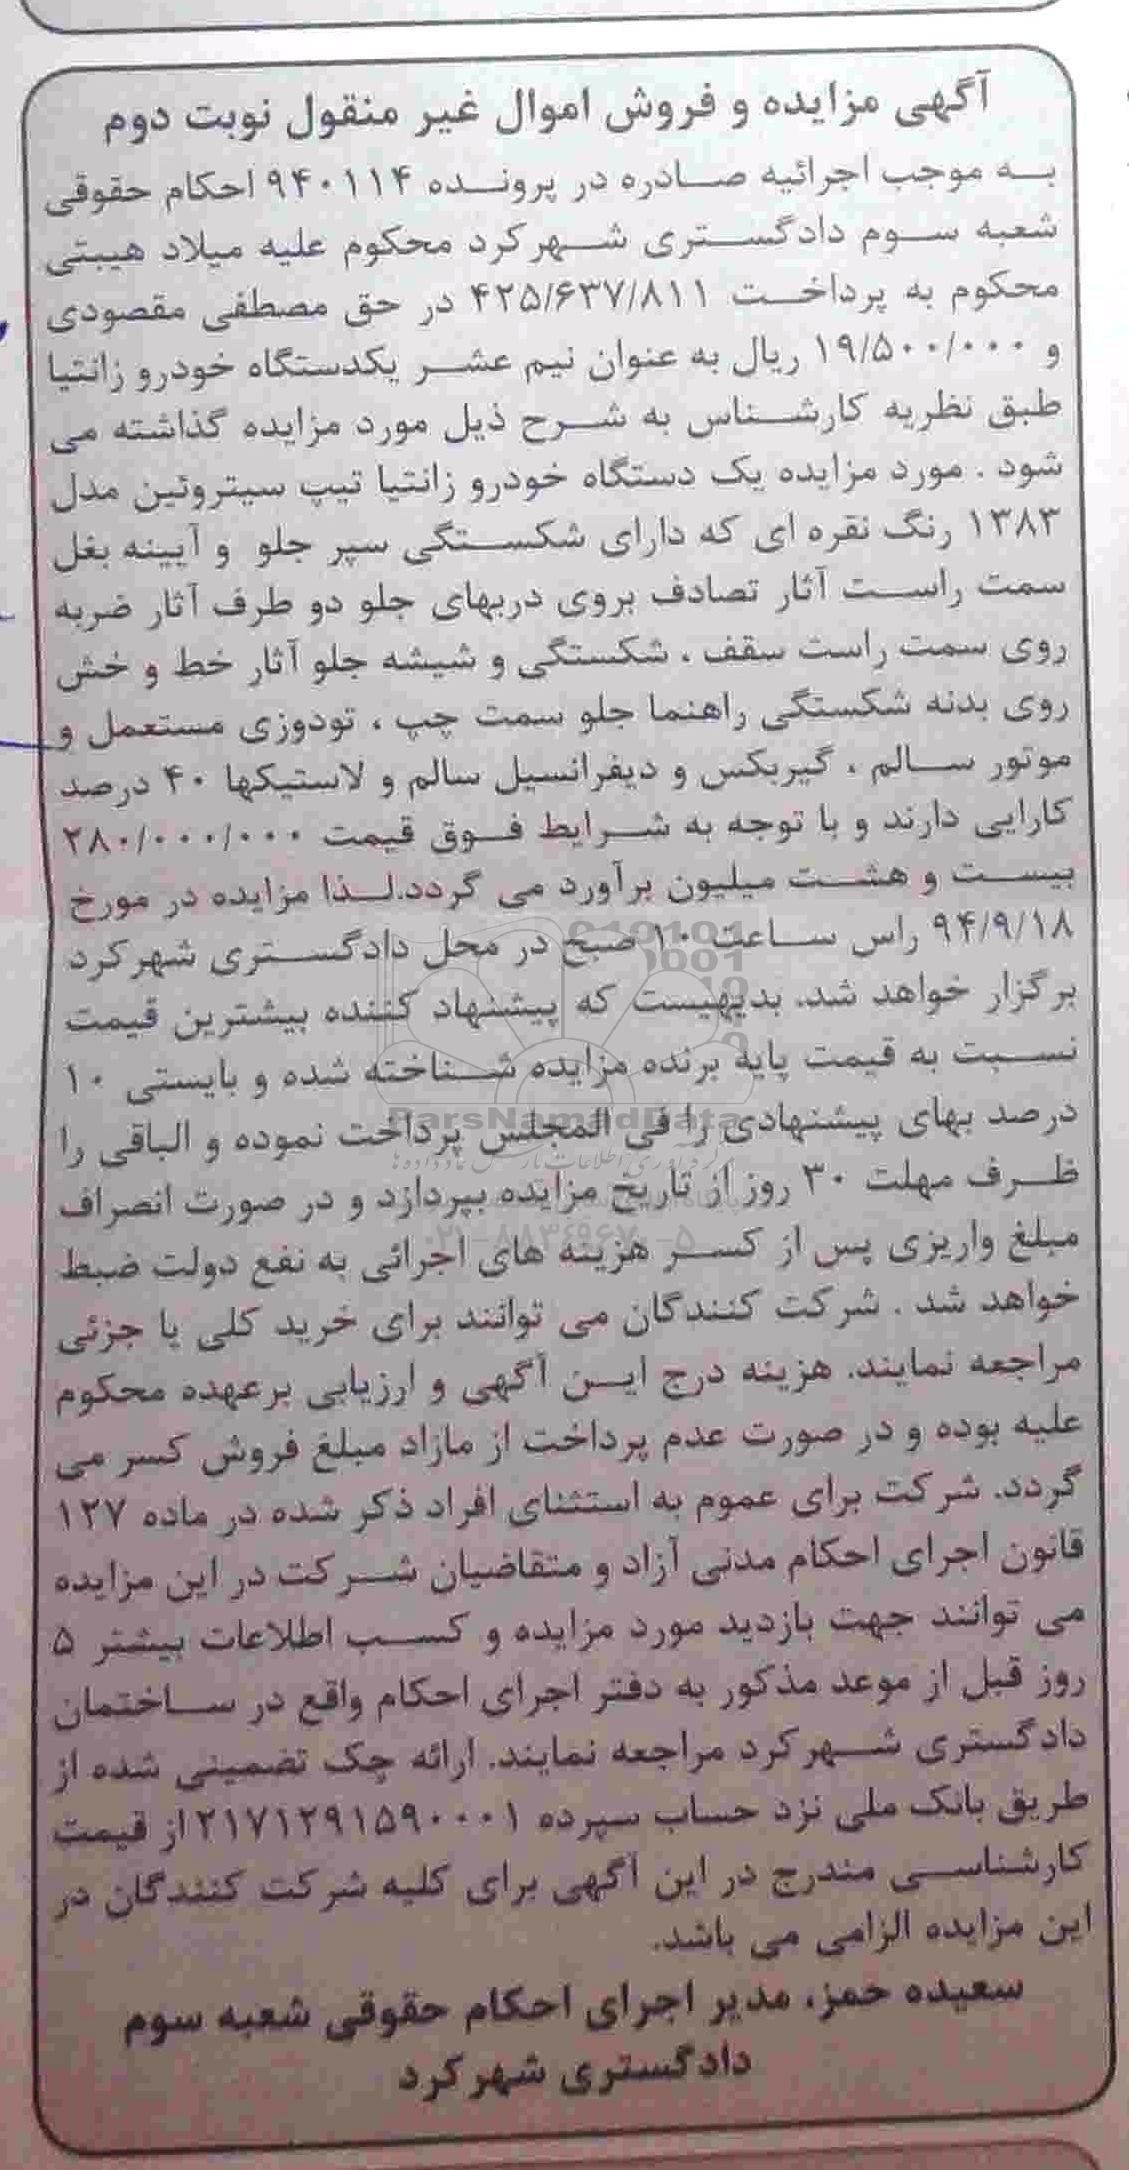 آگهی مزایده و فروش اموال غیر منقول نوبت دوم
به موجب اجرائیه صادره در پرونده ۹۴۰۱۱۴ احکام حقوقی
شعبه سوم دادگستری شهرکرد محکوم علیه میلاد هیبتی
محکوم به پرداخت ۴۲۵/۶۳۷/۸۱۱ در حق مصطفی مقصودی
و ۱۹/۵۰۰/۰۰۰ ریال به عنوان نیم عشر یکدستگاه خودرو زانتیا
طبق نظریه کارشناس به شرح ذیل مورد مزایده گذاشته می
شود . مورد مزایده یک دستگاه خودرو زانتیا تیپ سیتروئین مدل
۱۳۸۳ رنگ نقره ای که دارای شکستگی سپر جلو و آیینه بغل
سمت راست آثار تصادف بروی دربهای جلو دو طرف آثار ضربه
روی سمت راست سقف ، شکستگی و شیشه جلو آثار خط و خش
روی بدنه شکستگی راهنما جلو سمت چپ ، تودوزی مستعمل و
موتور سالم ، گیربکس و دیفرانسیل سالم و لاستیکها ۴۰ درصد
کارایی دارند و با توجه به شرایط فوق قیمت ۲۸۰/۰۰۰/۰۰۰
بیست و هشت میلیون برآورد می گردد.لذا مزایده در مورخ
۹۴/۹/۱۸ راس ساعت ۱۰ صبح در محل دادگستری شهرکرد
برگزار خواهد شد. بدیهیست که پیشنهاد کننده بیشترین قیمت
نسبت به قیمت پایه برنده مزایده شناخته شده و بایستی ۱۰
درصد بهای پیشنهادی را فی المجلس پرداخت نموده و الباقی را
ظرف مهلت ۳۰ روز از تاریخ مزایده بپردازد و در صورت انصراف
مبلغ واریزی پس از کسر هزینه های اجرائی به نفع دولت ضبط
خواهد شد . شرکت کنندگان می توانند برای خرید کلی یا جزئی
مراجعه نمایند. هزینه درج این آگهی و ارزیابی برعهده محکوم
علیه بوده و در صورت عدم پرداخت از مازاد مبلغ فروش کسر می
گردد. شرکت برای عموم به استثنای افراد ذکر شده در ماده ۱۲۷
قانون اجرای احکام مدنی آزاد و متقاضیان شرکت در این مزایده
می توانند جهت بازدید مورد مزایده و کسب اطلاعات بیشتر ۵
روز قبل از موعد مذکور به دفتر اجرای احکام واقع در ساختمان
دادگستری شهرکرد مراجعه نمایند. ارائه چک تضمینی شده از
طریق بانک ملی نزد حساب سپرده ۲۱۷۱۲۹۱۵۹۰۰۰۱ از قیمت
کارشناسی مندرج در این آگهی برای کلیه شرکت کنندگان در
این مزایده الزامی می باشد.
سعیده خمز، مدیر اجرای احکام حقوقی شعبه سوم
دادگستری شهرکرد
ParsNamadData
۰۲۱-۸۸۳۴۹۶۷۰-۵